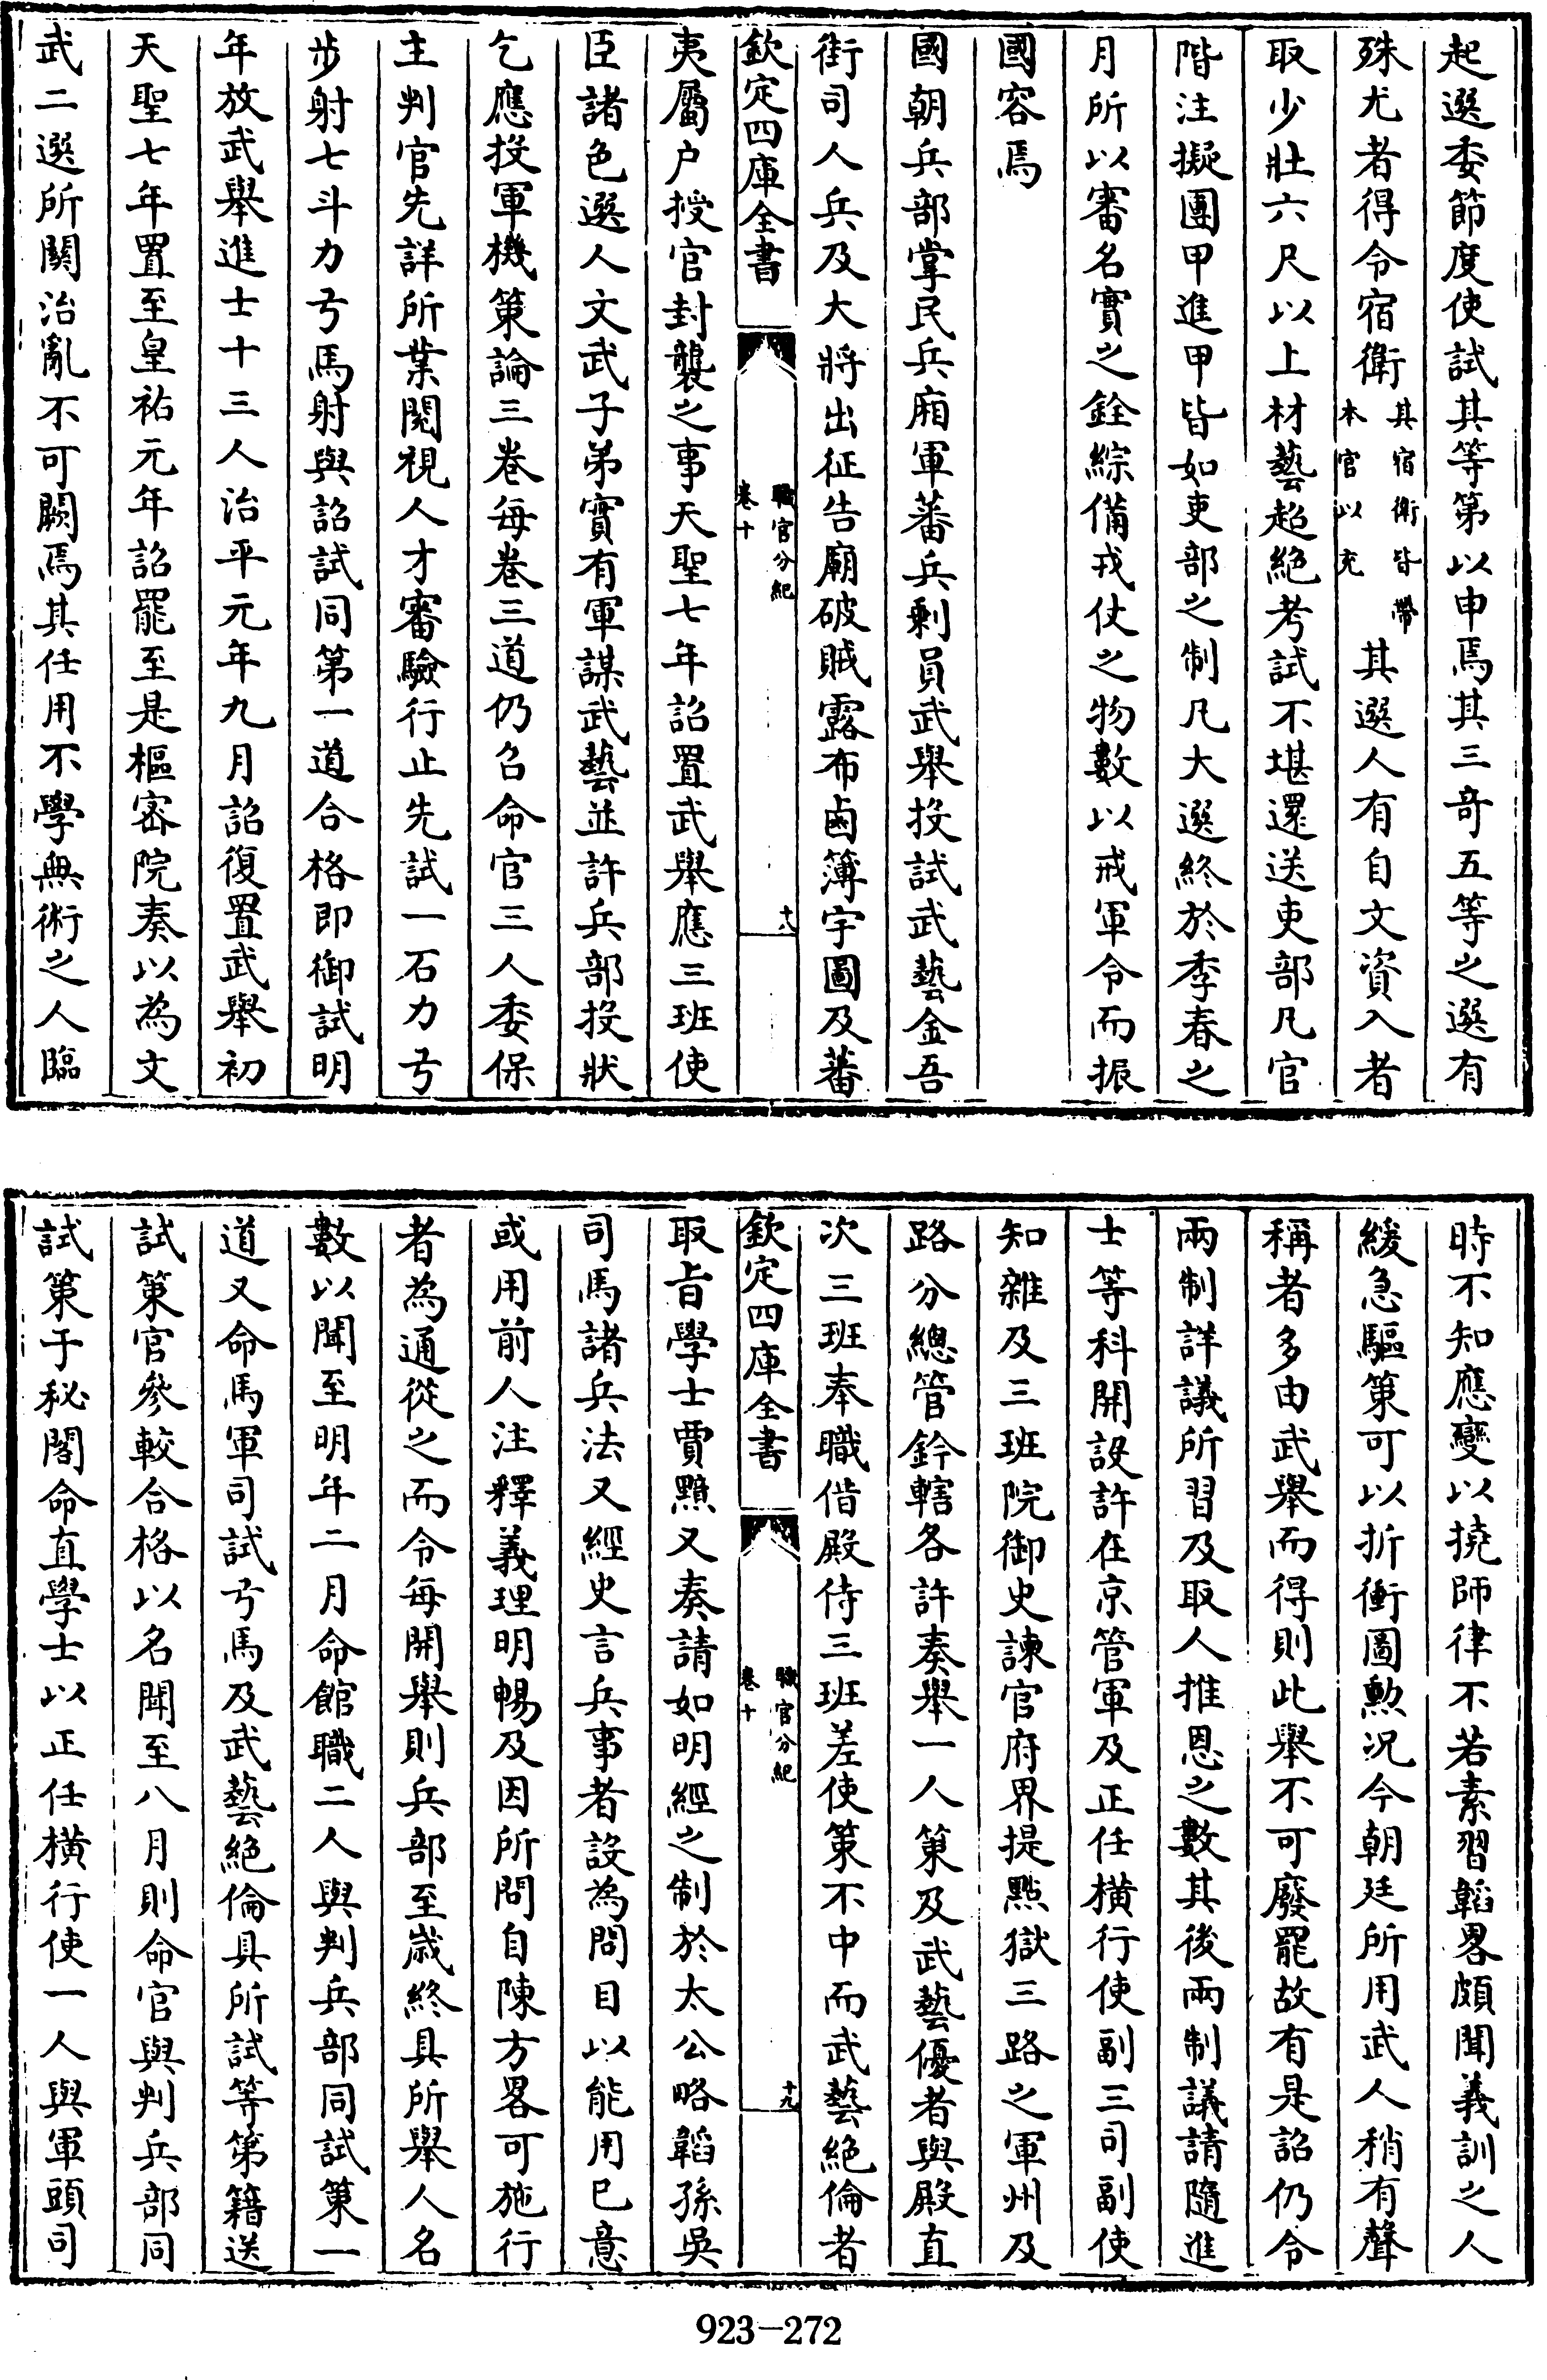 起選委節度使試其等第以申焉其三奇五等之選有
殊尤者得令宿衛其宿衛皆帶本官以充其選人有自文資入者
取少壯六尺以上材藝超絶考試不堪還送吏部凡官
階注擬團甲進甲皆如吏部之制凡大選終於季春之
月所以審名實之銓綜備戎仗之物數以戒軍令而振
國容焉
國朝兵部掌民兵廂軍蕃兵剩員武舉投試武藝金吾
街司人兵及大將出征告廟破賊露布鹵簿字圖及蕃
欽定四庫全書
職官分紀
卷十
十八
夷屬户授官封襲之事天聖七年詔置武舉應三班使
臣諸色選人文武子弟實有軍謀武藝並許兵部投狀
乞應投軍機策論三卷每卷三道仍召命官三人委保
主判官先詳所業閱視人才審驗行止先試一石力弓
步射七斗力弓馬射與詔試同第一道合格即御試明
年放武舉進士十三人治平元年九月詔復置武舉初
天聖七年置至皇祐元年詔罷至是樞密院奏以為文
武二選所關治亂不可闕焉其任用不學無術之人臨
時不知應變以撓師律不若素習韜畧頗聞義訓之人
緩急驅策可以折衝圖勲况今朝廷所用武人稍有聲
稱者多由武舉而得則此舉不可廢罷故有是詔仍令
兩制詳議所習及取人推恩之數其後兩制議請隨進
士等科開設許在京管軍及正任橫行使副三司副使
知雜及三班院御史諫官府界提㸃獄三路之軍州及
路分總管鈐轄各許奏舉一人策及武藝優者與殿直
次三班奉職借殿侍三班差使策不中而武藝絶倫者
欽定四庫全書
職官分紀
卷十
十九
取㫖學士賈黯又奏請如明經之制於太公略韜孫吳
司馬諸兵法又經史言兵事者設為問目以能用已意
或用前人注釋義理明暢及因所問自陳方畧可施行
者為通從之而令每開舉則兵部至歲終具所舉人名
數以聞至明年二月命館職二人與判兵部同試策一
道又命馬軍司試弓馬及武藝絶倫具所試等第籍送
試策官參較合格以名聞至八月則命官與判兵部同
試策于秘閣命直學士以正任橫行使一人與軍頭司
923—272